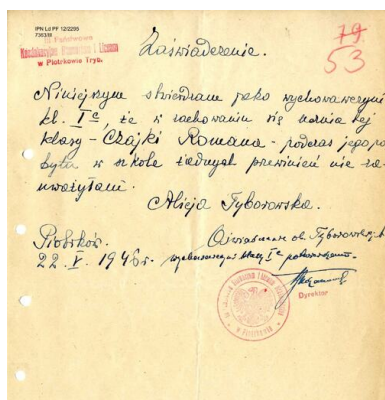 IPN Ld PF 12/2295
735338
79
53
w Piotrkowie Tryb.
Zaświadczenie.
Niniejszym stwierdzam jako wychowawczyni
kl. Iᶜ, że w zachowaniu się ucznia tej
klasy – Czajki Romana – podczas jego po-
bytu w szkole żadnych przewinień nie za-
uważyłam.
Alicja Tyborowska.
Piotrków.
22. V. 1946 r.
Oświadczenie ob. Tyborowskiej
wychowawczyni klasy Iᶜ potwierdzam.
Dyrektor